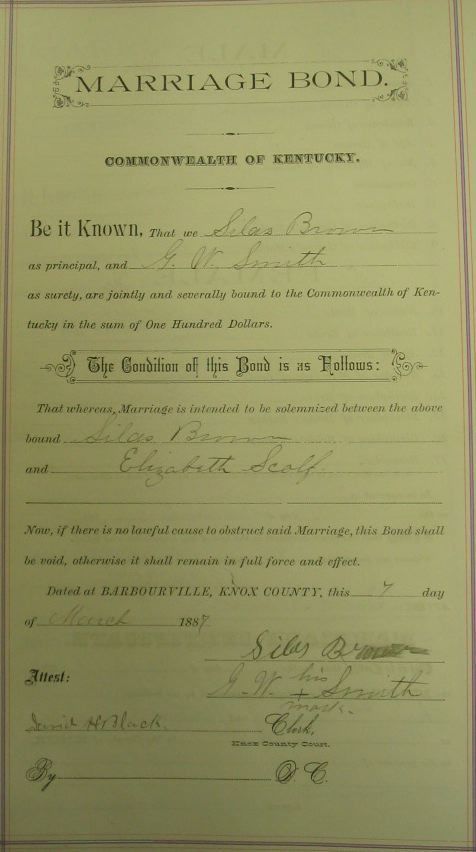 MARRIAGE BOND.
COMMONWEALTH OF KENTUCKY.
Be it Known, That we Silas Brown
as principal, and G. W. Smith
as surety, are jointly and severally bound to the Commonwealth of Ken-
tucky in the sum of One Hundred Dollars.
The Condition of this Bond is as Follows:
That whereas, Marriage is intended to be solemnized between the above
bound Silas Brown
and Elizabeth Scalf
Now, if there is no lawful cause to obstruct said Marriage, this Bond shall
be void, otherwise it shall remain in full force and effect.
Dated at BARBOURVILLE, KNOX COUNTY, this 7 day
of March 1887
Silas Brown
Attest:
G. W. his + Smith
mark.
David H Black. Clerk,
Knox County Court.
By D. C.